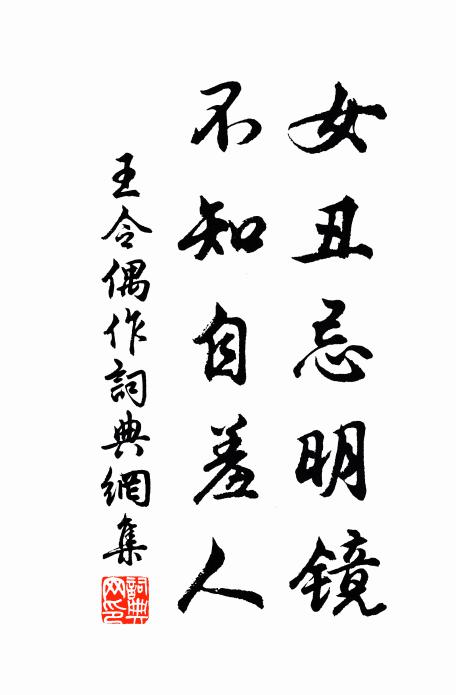 女丑忌明镜
不知自羞人
王令偶作詞典網集